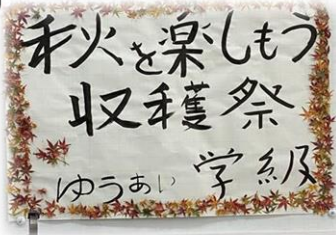 秋を楽しもう
収穫祭
ゆうあい 学級